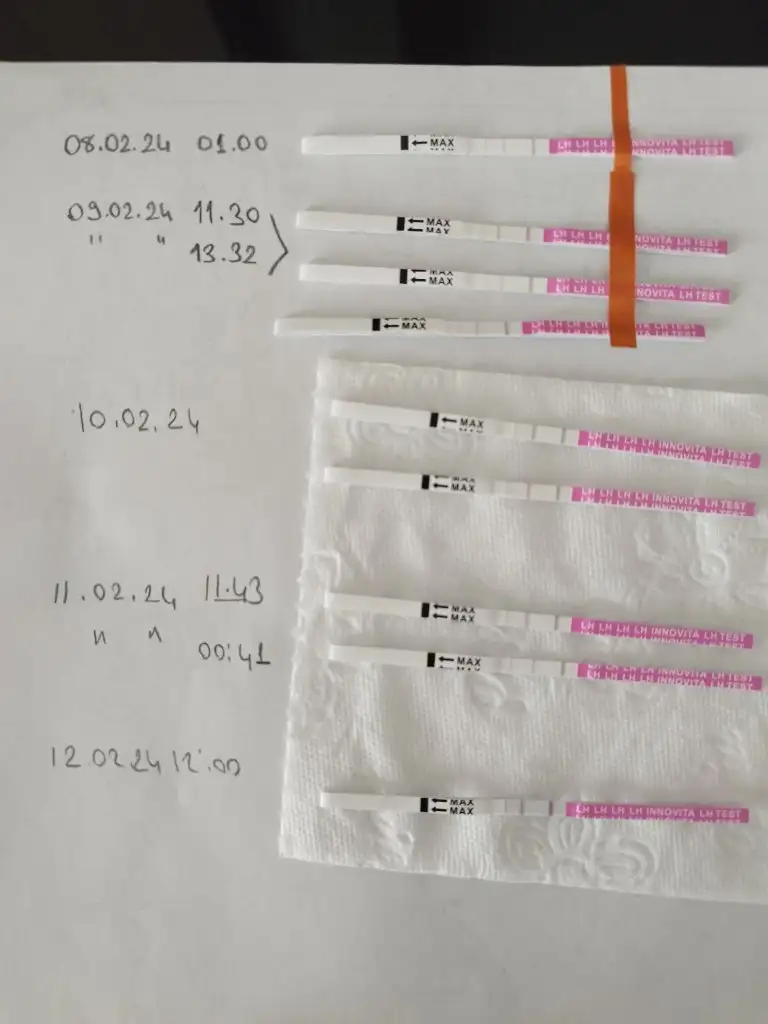 08.02.24 01.00
MAX
LH LH LH INNOVITA LH TEST
09.02.24 11.30
MAX
MAX
LH LH LH INNOVITA LH TEST
" " 13.32
MAX
MAX
LH LH LH INNOVITA LH TEST
MAX
MAX
LH LH LH LH INNOVITA LH TEST
10.02.24
MAX
LH LH LH LH INNOVITA LH TEST
MAX
MAX
LH LH LH LH INNOVITA LH TEST
11.02.24 11.43
MAX
MAX
LH LH LH LH INNOVITA LH TEST
" " 00:41
MAX
LH LH LH LH INNOVITA LH TEST
12.02.24 12.00
MAX
MAX
LH LH LH LH INNOVITA LH TEST